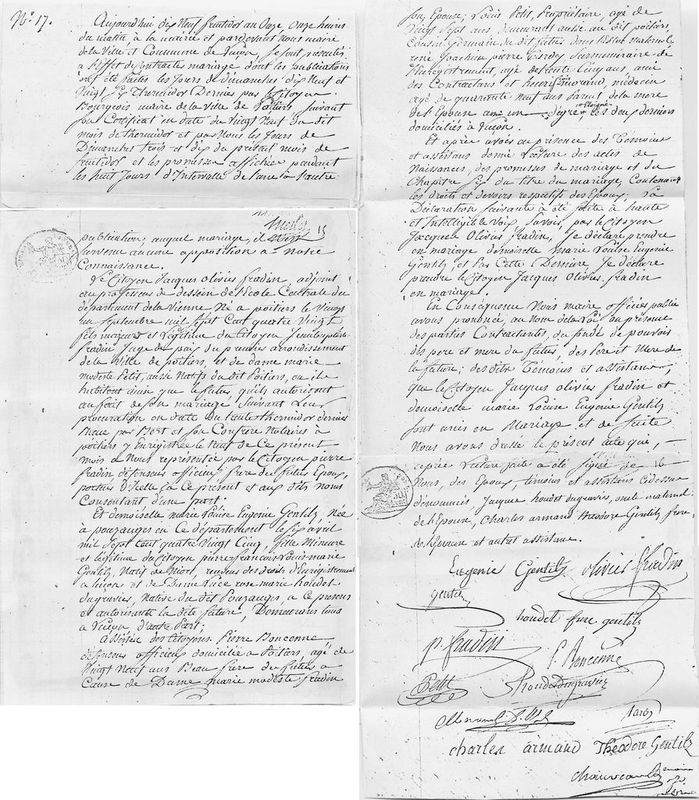 N.° 17.
Aujourdhui dix Neuf fructidor an Onze onze heures
du matin à la mairie et pardevant Nous maire
de la Ville et Commune de Luçon, se sont présentés
a l'Effet de contracter mariage dont les publications
ont été faites les Jours de Dimanches dix Neuf et
Vingt Thermidor Dernier par le Citoyen
Bourgeois maire de la Ville de Poitiers suivant
son Certificat en date du Vingt Neuf du dit
mois de thermidor et par Nous les Jours de
Dimanches trois et dix du présent mois de
fructidor et les promesses affichées pendant
les huit Jours d'Intervalle de l'une à l'autre
publication, auquel mariage, il n'est
survenu aucune opposition a notre
Connaissance.
Le Citoyen Jacques olivier fradin, adjoint
au professeur de dessein de l'école Centrale du
département de la Vienne Né a poitiers le Vingt
un Septembre mil Sept Cent quatre Vingt
fils majeur et légitime du Citoyen
fradin Juge de paix du premier arrondissement
de la Ville de poitiers, et de dame marie
modeste Petit, aussi Natifs du dit Poitiers, ou ils
habitent ainsi que le futur, qu'ils autorisent
au fait de son mariage suivant leur
procuration en date du trente thermidor dernier
Reçue par Bert et son Confrère Notaires à
poitiers y Enregistrée le Neuf de Ce présent
mois a Nous représentée par le Citoyen pierre
fradin défenseur officieux frère du futur Epoux,
porteur d'Icelle à Ce présent et aux dits noms
Consentant d'une part;
Et demoiselle marie Louise Eugenie Gentilz Née
à pouzauges en Ce département le Sept avril
mil Sept Cent quatre Vingt Cinq, fille Mineure
et légitime du Citoyen pierre françois Louis marie
Gentilz, Natif de Niort receveur des droits d'Enregistrement
a Luçon et de Dame rose marie houdet
dugravier, Native du dit Pouzauges, a Ce présens
et autorisants la dite future, Demeurans tous
à Luçon, d'autre Part;
assistés des Citoyens Pierre Boncenne
défenseur officieux domicilié a Poitiers, agé de
Vingt Neuf ans Beau frere du futur à
Cause de Dame marie modeste fradin
son Epouse; Louis Petit, Propriétaire, agé de
Vingt Sept ans demeurant aussi au dit poitiers,
Cousin Germain du dit futur dans l'Estoc maternel
rené Joachim pierre surnuméraire de
l'Enregistrement, agé de trente Cinq ans, ami
des Contractans et henri morand, médecin
agé de quarante Neuf ans parent de la mere
de l'épouse au degré éloigné les deux derniers
domiciliés à Luçon.
Et après avoir en présence des Témoins
et assistans donné Lecture des actes de
Naissances, des promesses de mariage et du
Chapitre six du titre du mariage, Contenant
les droits et devoirs respectifs des Epoux; La
Déclaration suivante a été faite à haute
et Intelligible Voix Savoir par le Citoyen
Jacques Olivier fradin, Je déclare prendre
en mariage demoiselle Marie Louise Eugenie
Gentilz, et par Cette Derniere Je déclare
prendre le Citoyen Jacques Olivier fradin
en mariage.
En Conséquence Nous maire officier public
avons prononcé, au Nom de la Loi en présence
des parties Contractantes, du fondé de pouvoir
des pere et mere du futur, des Pere et Mere de
la future; des dits témoins et assistans,
que le Citoyen Jacques olivier fradin et
demoiselle marie Louise Eugenie Gentilz
sont unis en Mariage et de suite
Nous avons dressé le présent acte qui,
après Lecture faite a été signée de
Nous, des Epoux, témoins et assistans Ci dessus
dénommés, Jacques houdet dugravier, oncle maternel
de l'épouse, Charles armand théodore Gentilz, frere
de l'épouse et autres assistans.
Eugenie Gentilz olivier fradin
Gentilz
houdet fme gentilz
p. fradin
P. Boncenne
Petit
houdet dugravier
charles armand Théodore Gentilz